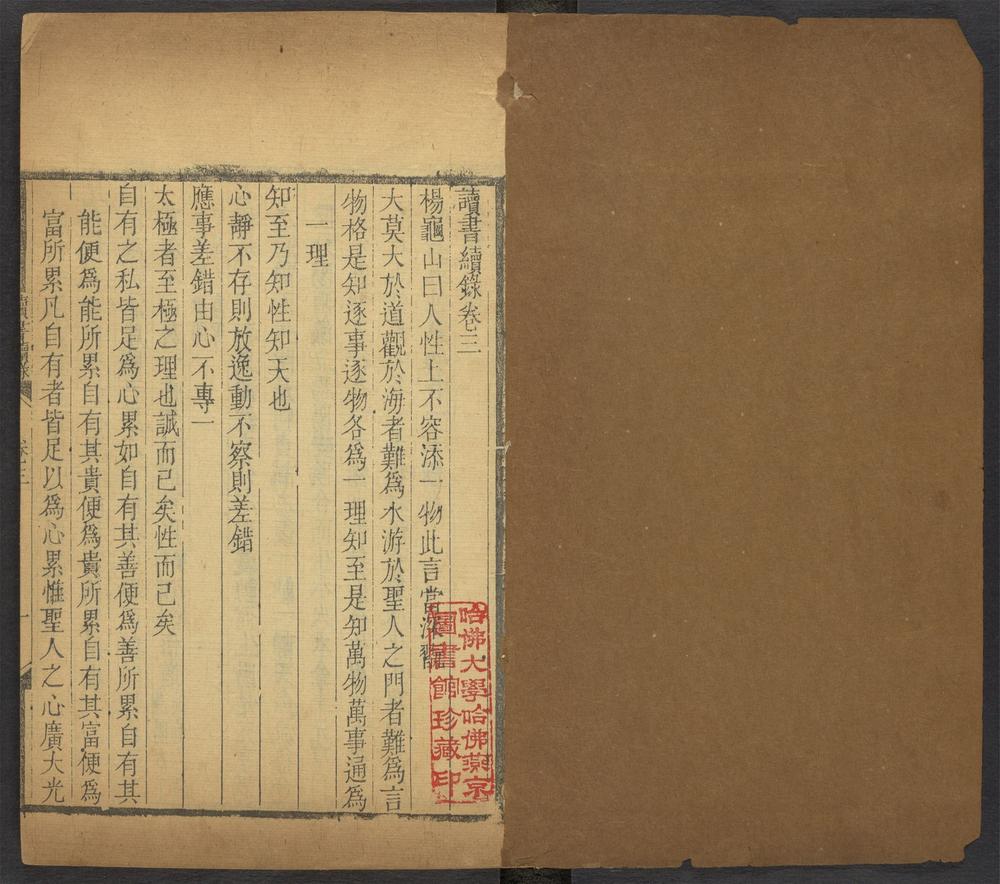 讀書續錄卷三
楊龜山曰人性上不容添一物此言當深翫
大莫大於道觀於海者難為水游於聖人之門者難為言
物格是知逐事逐物各為一理知至是知萬物萬事通為
一理
知至乃知性知天也
心靜不存則放逸動不察則差錯
應事差錯由心不專一
太極者至極之理也誠而已矣性而已矣
自有之私皆足為心累如自有其善便為善所累自有其
能便為能所累自有其貴便為貴所累自有其富便為
富所累凡自有者皆足以為心累惟聖人之心廣大光
讀書續錄
卷三
一
哈佛大學哈佛燕京
圖書館珍藏印